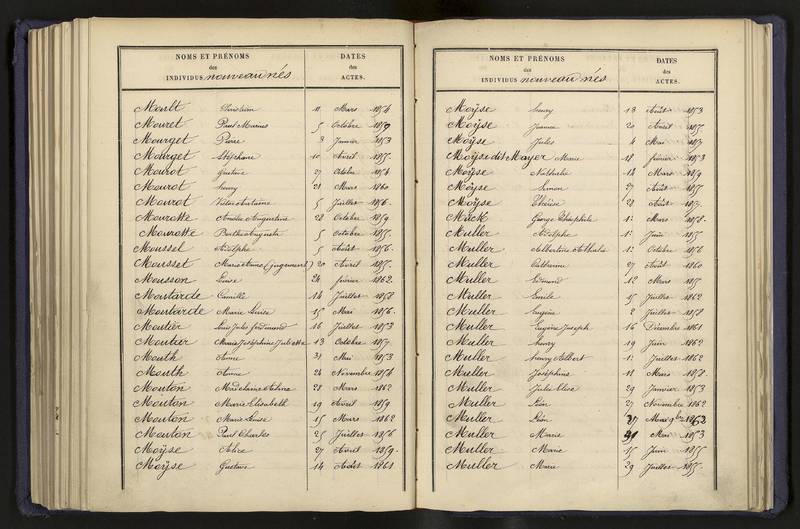 NOMS ET PRÉNOMS
des
INDIVIDUS nouveau nés
DATES
des
ACTES.
Moult Ghislain 11 Mars 1854
Mouret Paul Marius 5 Octobre 1859
Mourget Pierre 3 Janvier 1853
Mourget Stéphanie 10 Avril 1855
Mourot Gustave 27 Octobre 1854
Mourot henry 28 Mars 1860
Mourot Victor Antoine 5 Juillet 1856
Mourotte Amélie Augustine 28 Octobre 1859
Mourotte Berthe Augusta 5 Octobre 1855
Moussel Adolphe 5 Août 1856
Mousset Marie Anne (jugement) 20 Avril 1855
Mousson Louise 24 février 1862
Moutarde Camille 14 Juillet 1858
Moutarde Marie Louise 15 Mai 1856
Moutier Louis Jules Ferdinand 16 Juillet 1853
Moutier Marie Joséphine Juliette 13 Octobre
Mouth Anne 31 Mai 1853
Mouth Anne 24 Novembre 1854
Mouton Madeleine 28 Mars 1862
Mouton Marie Elisabeth 19 Avril 1859
Mouton Marie Louise 15 Mars 1862
Mouton Paul Charles 25 Juillet 1856
Moÿse Alice 27 Avril 1859
Moÿse Gustave 14 Août 1861
NOMS ET PRÉNOMS
des
INDIVIDUS nouveau nés
DATES
des
ACTES.
Moÿse henry 13 Août 1853
Moÿse Jeanne 20 Avril 1855
Moÿse Jules 4 Mai
Moÿse dit Mayer Marie 18 février 1853
Moÿse Nathalie 14 Mars 1859
Moÿse Simon 27 Août
Moÿse Thérèse 28 Août
Muck George Théophile 1er Mars 1858
Muller Adolphe 1er Juin 1855
Muller Albertine Athalie 1er Octobre 1856
Muller Catherine 27 Août 1860
Muller Edmond 12 Mars 1855
Muller Emile 15 Juillet 1862
Muller Eugène 2 Juillet 1858
Muller Eugène Joseph 16 Décembre 1861
Muller henry 19 Juin 1862
Muller henry Albert 1er Juillet 1862
Muller Joséphine 11 Mars 1858
Muller Jules Elise 29 Janvier 1853
Muller Léon 27 Novembre 1862
Muller Léon 27 9bre 1862
Muller Marie Mai 1853
Muller Marie 15 Juin 1855
Muller Marie 29 Juillet 1855